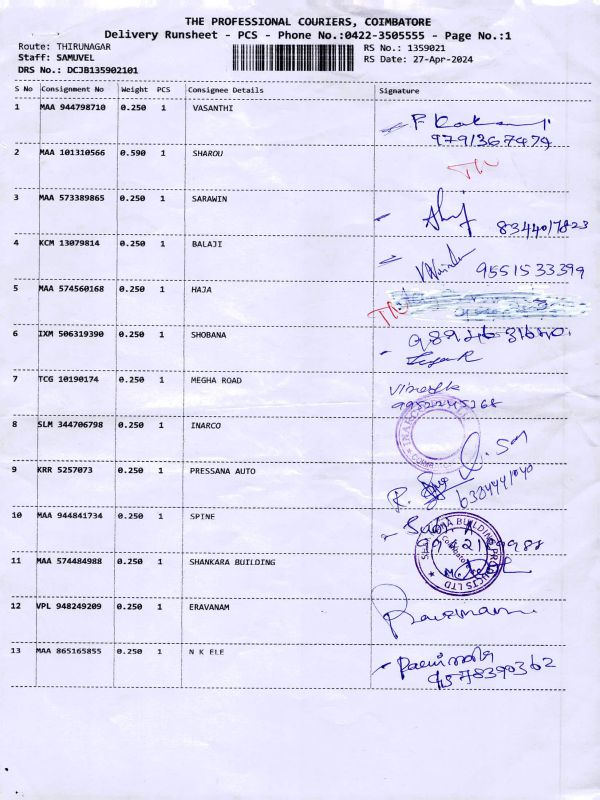 THE PROFESSIONAL COURIERS, COIMBATORE
Delivery Runsheet - PCS - Phone No.:0422-3505555 - Page No.:1
Route: THIRUNAGAR
RS No.: 1359021
Staff: SAMUVEL
RS Date: 27-Apr-2024
DRS No.: DCJB135902101
S No Consignment No Weight PCS Consignee Details Signature
1 MAA 944798710 0.250 1 VASANTHI
9791367479
2 MAA 101310566 0.590 1 SHAROU
3 MAA 573389865 0.250 1 SARAWIN
8344017823
4 KCM 13079814 0.250 1 BALAJI
9551533399
5 MAA 574560168 0.250 1 HAJA
6 IXM 506319390 0.250 1 SHOBANA
7 TCG 10190174 0.250 1 MEGHA ROAD
8 SLM 344706798 0.250 1 INARCO
INARCO
9 KRR 5257073 0.250 1 PRESSANA AUTO
10 MAA 944841734 0.250 1 SPINE
11 MAA 574484988 0.250 1 SHANKARA BUILDING
BUILDING PRODUCTS LTD
12 VPL 948249209 0.250 1 ERAVANAM
13 MAA 865165855 0.250 1 N K ELE